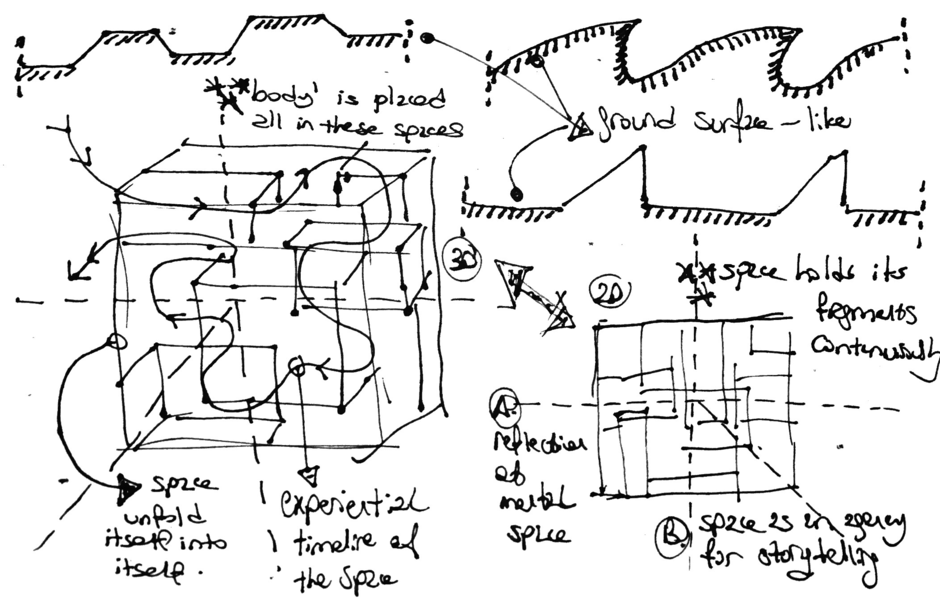 ** 'body' is placed
all in these spaces
ground surface-like
3D
2D
** space holds its
fragments
continuously
A.
reflection
of
mental
space
B.
space as an agency
for storytelling
space
unfold
itself into
itself.
experiential
timeline of
the space